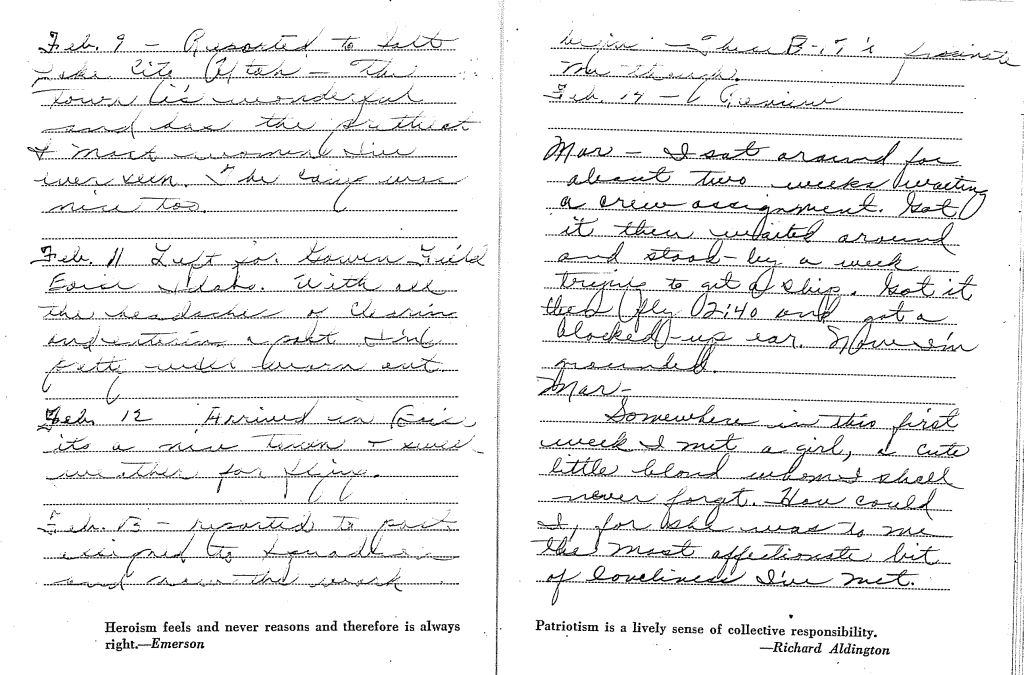 Feb. 9 – Reported to Salt
Lake City Utah – The
Town is wonderful
and has the prettiest
& most women I've
ever seen. The camp was
nice too.
Feb. 11 Left for Gowen Field
Boise Idaho. With all
the headaches of clearing
and entering a post I'm
pretty well worn out.
Feb. 12 Arrived in Boise,
it's a nice town & swell
weather for flying.
Feb. 13 – reported to post
assigned to Squadron
and now the work
begins – These B-17's fascinate
me though.
Feb. 14 –
Mar – I sat around for
about two weeks waiting
a crew assignment. Got
it then waited around
and stood-by a week
trying to get a ship. Got it
then fly 02:40 and got a
blocked-up ear. Now I'm
grounded.
Mar –
Somewhere in this first
week I met a girl, a cute
little blond whom I shall
never forgt. How could
I, for she was to me
the most affectionate bit
of loveliness I've met.
Heroism feels and never reasons and therefore is always
right.—Emerson
Patriotism is a lively sense of collective responsibility.
—Richard Aldington